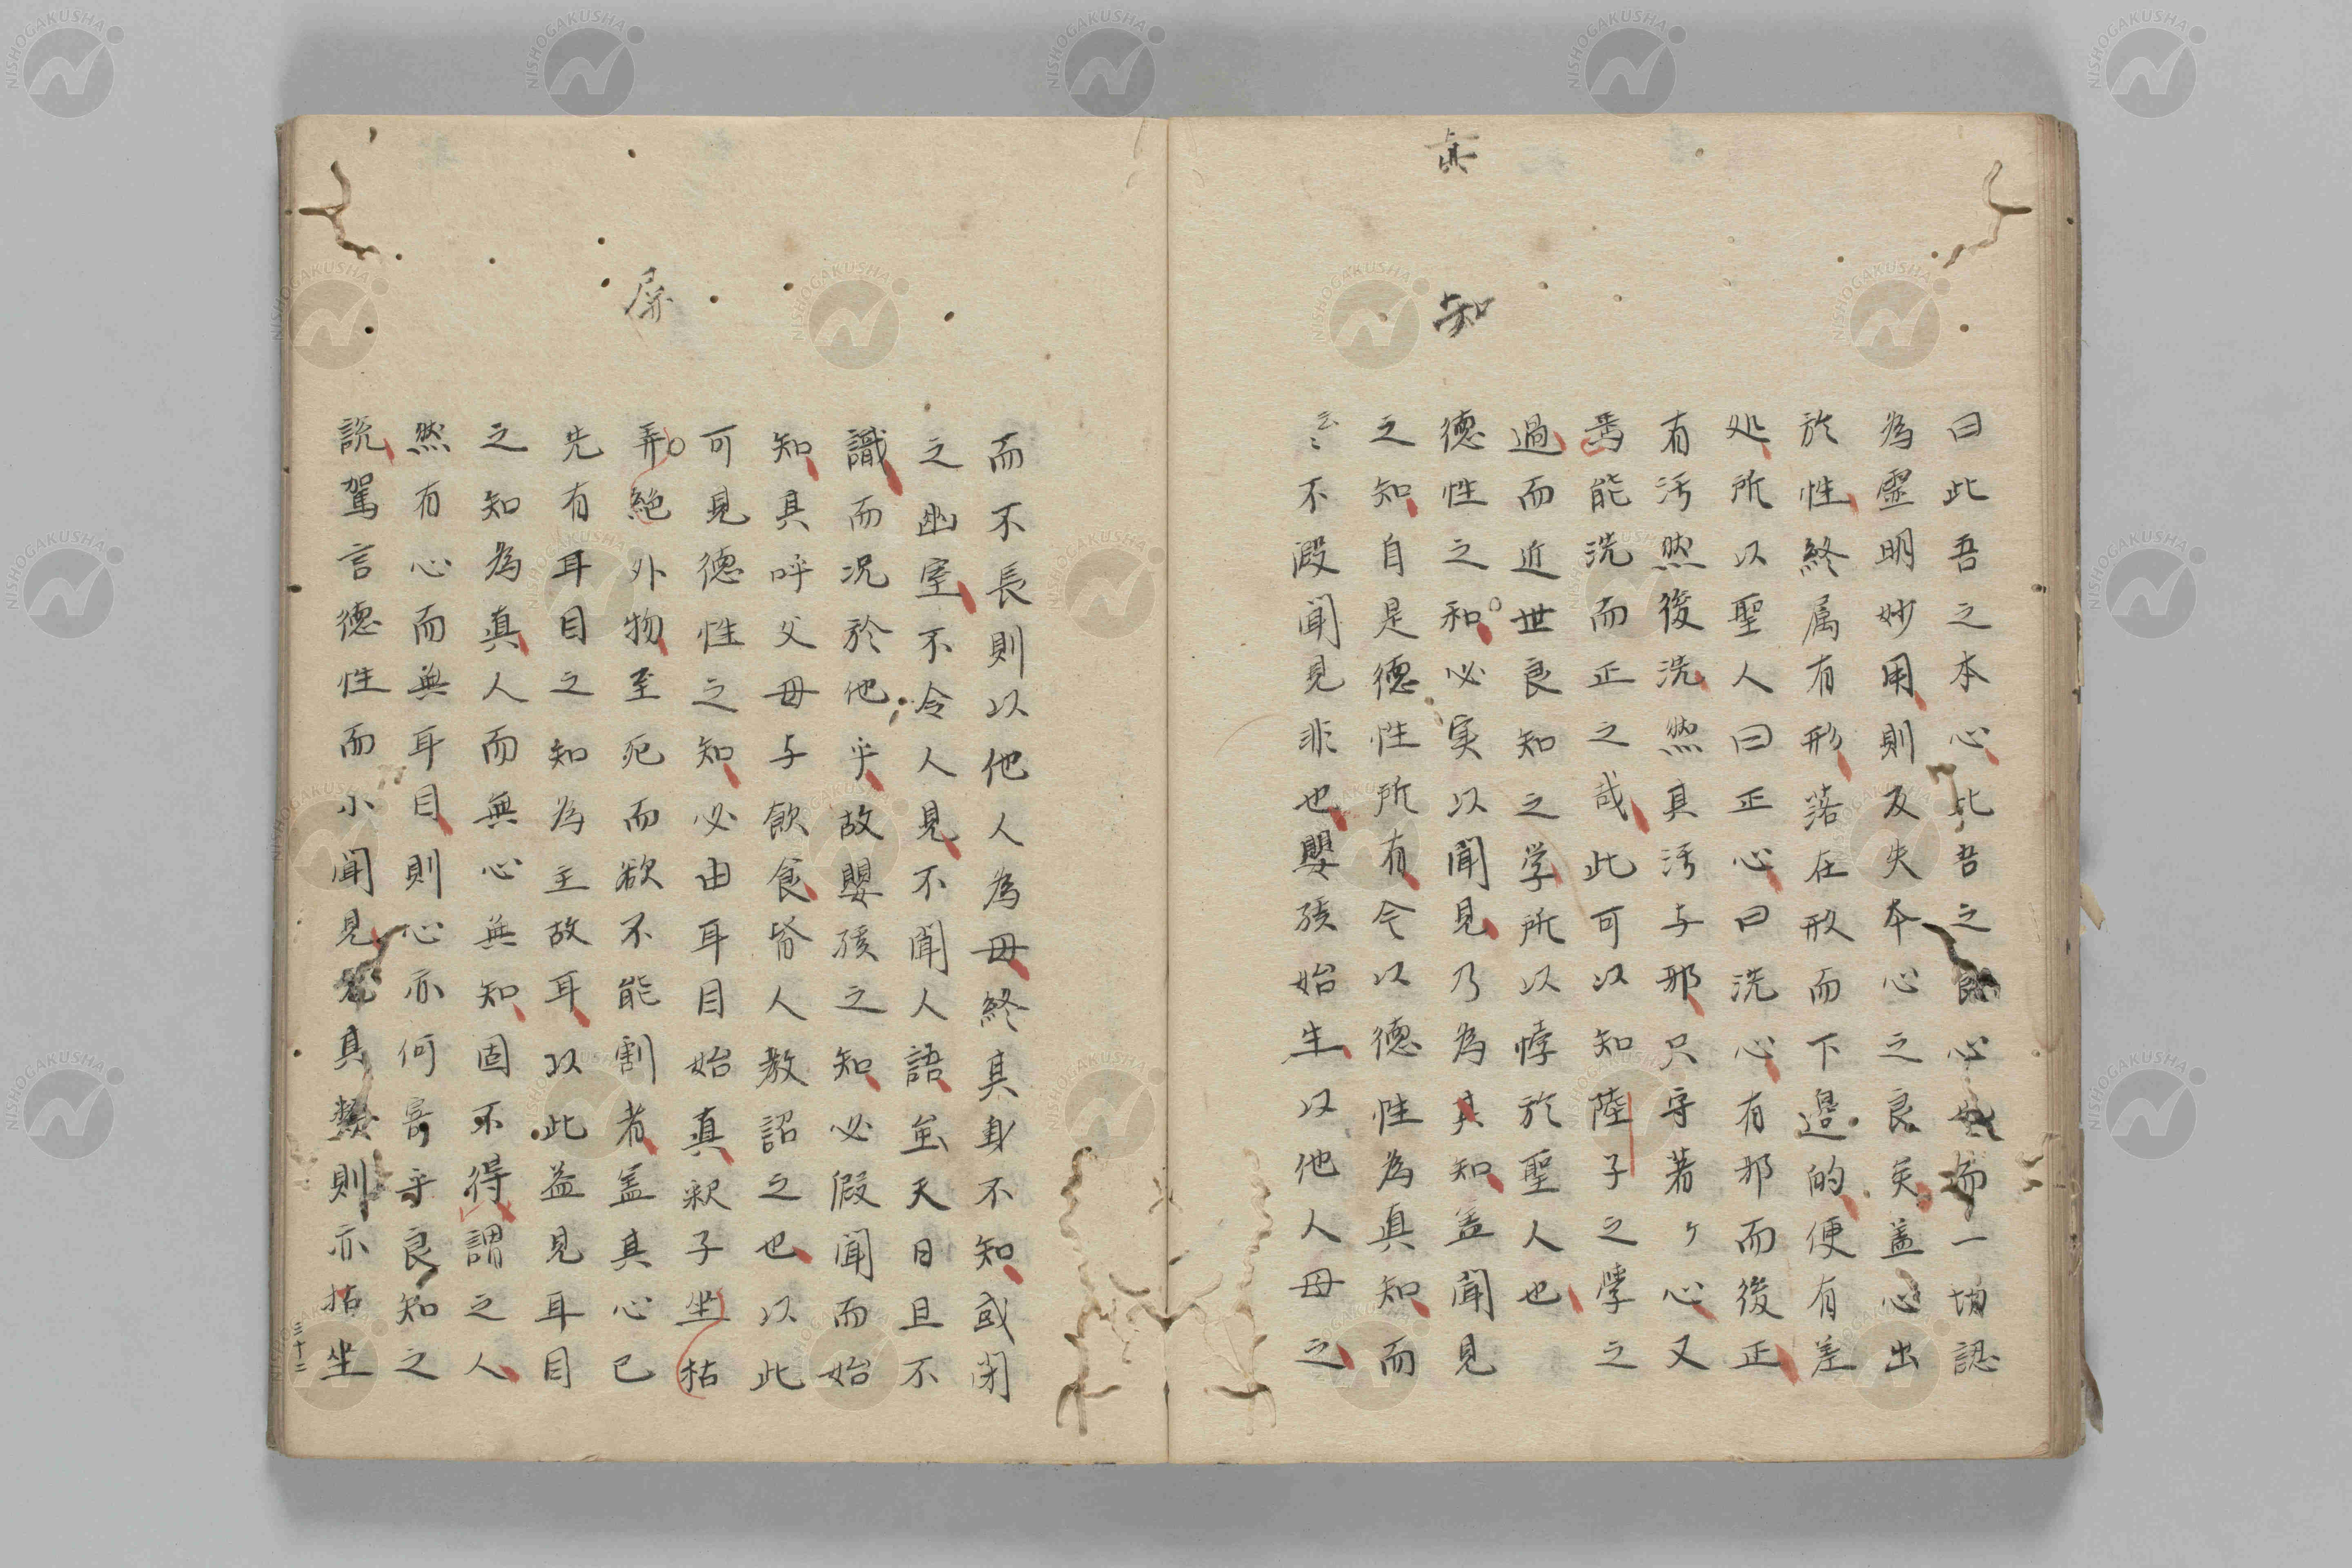 真
知
曰此吾之本心此吾之良心如而一切認
為霊明妙用則反失本心之良矣盖心出
於性終属有形落在形而下邉的便有差
処所以聖人曰正心曰洗心有邪而後正
有汚然後洗然真汚与邪只守著ヶ心又
焉能洗而正之哉此可以知陸子之學之
過而近世良知之学所以悖於聖人也
德性之和必実以聞見乃為其知盖聞見
之知自是德性所有今以德性為真知而
云云不假聞見非也嬰孩始生以他人母之
屏
而不長則以他人為母終其身不知或閉
之幽室不令人見不聞人語至天日且不
識而况於他乎故嬰孩之知必假聞而始
知其呼父母与飲食皆人教詔之也以此
可見德性之知必由耳目始真釈子坐枯
弄絶外物至死而欲不能割者盖其心已
先有耳目之知為主故耳以此益見耳目
之知為真人而無心無知固不得謂之人
然有心而無耳目則心亦何寄乎良知之
説駕言德性而小聞見充其弊則亦枯坐
三十二
NISHOGAKUSHA